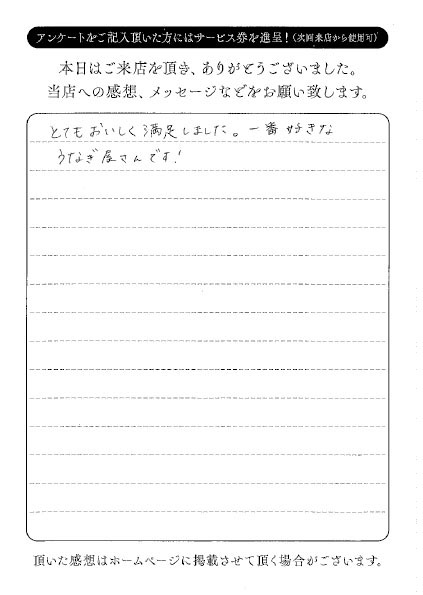 アンケートをご記入頂いた方にはサービス券を進呈!(次回来店から使用可)
本日はご来店を頂き、ありがとうございました。
当店への感想、メッセージなどをお願い致します。
とてもおいしく満足しました。一番好きな
うなぎ屋さんです!
頂いた感想はホームページに掲載させて頂く場合がございます。